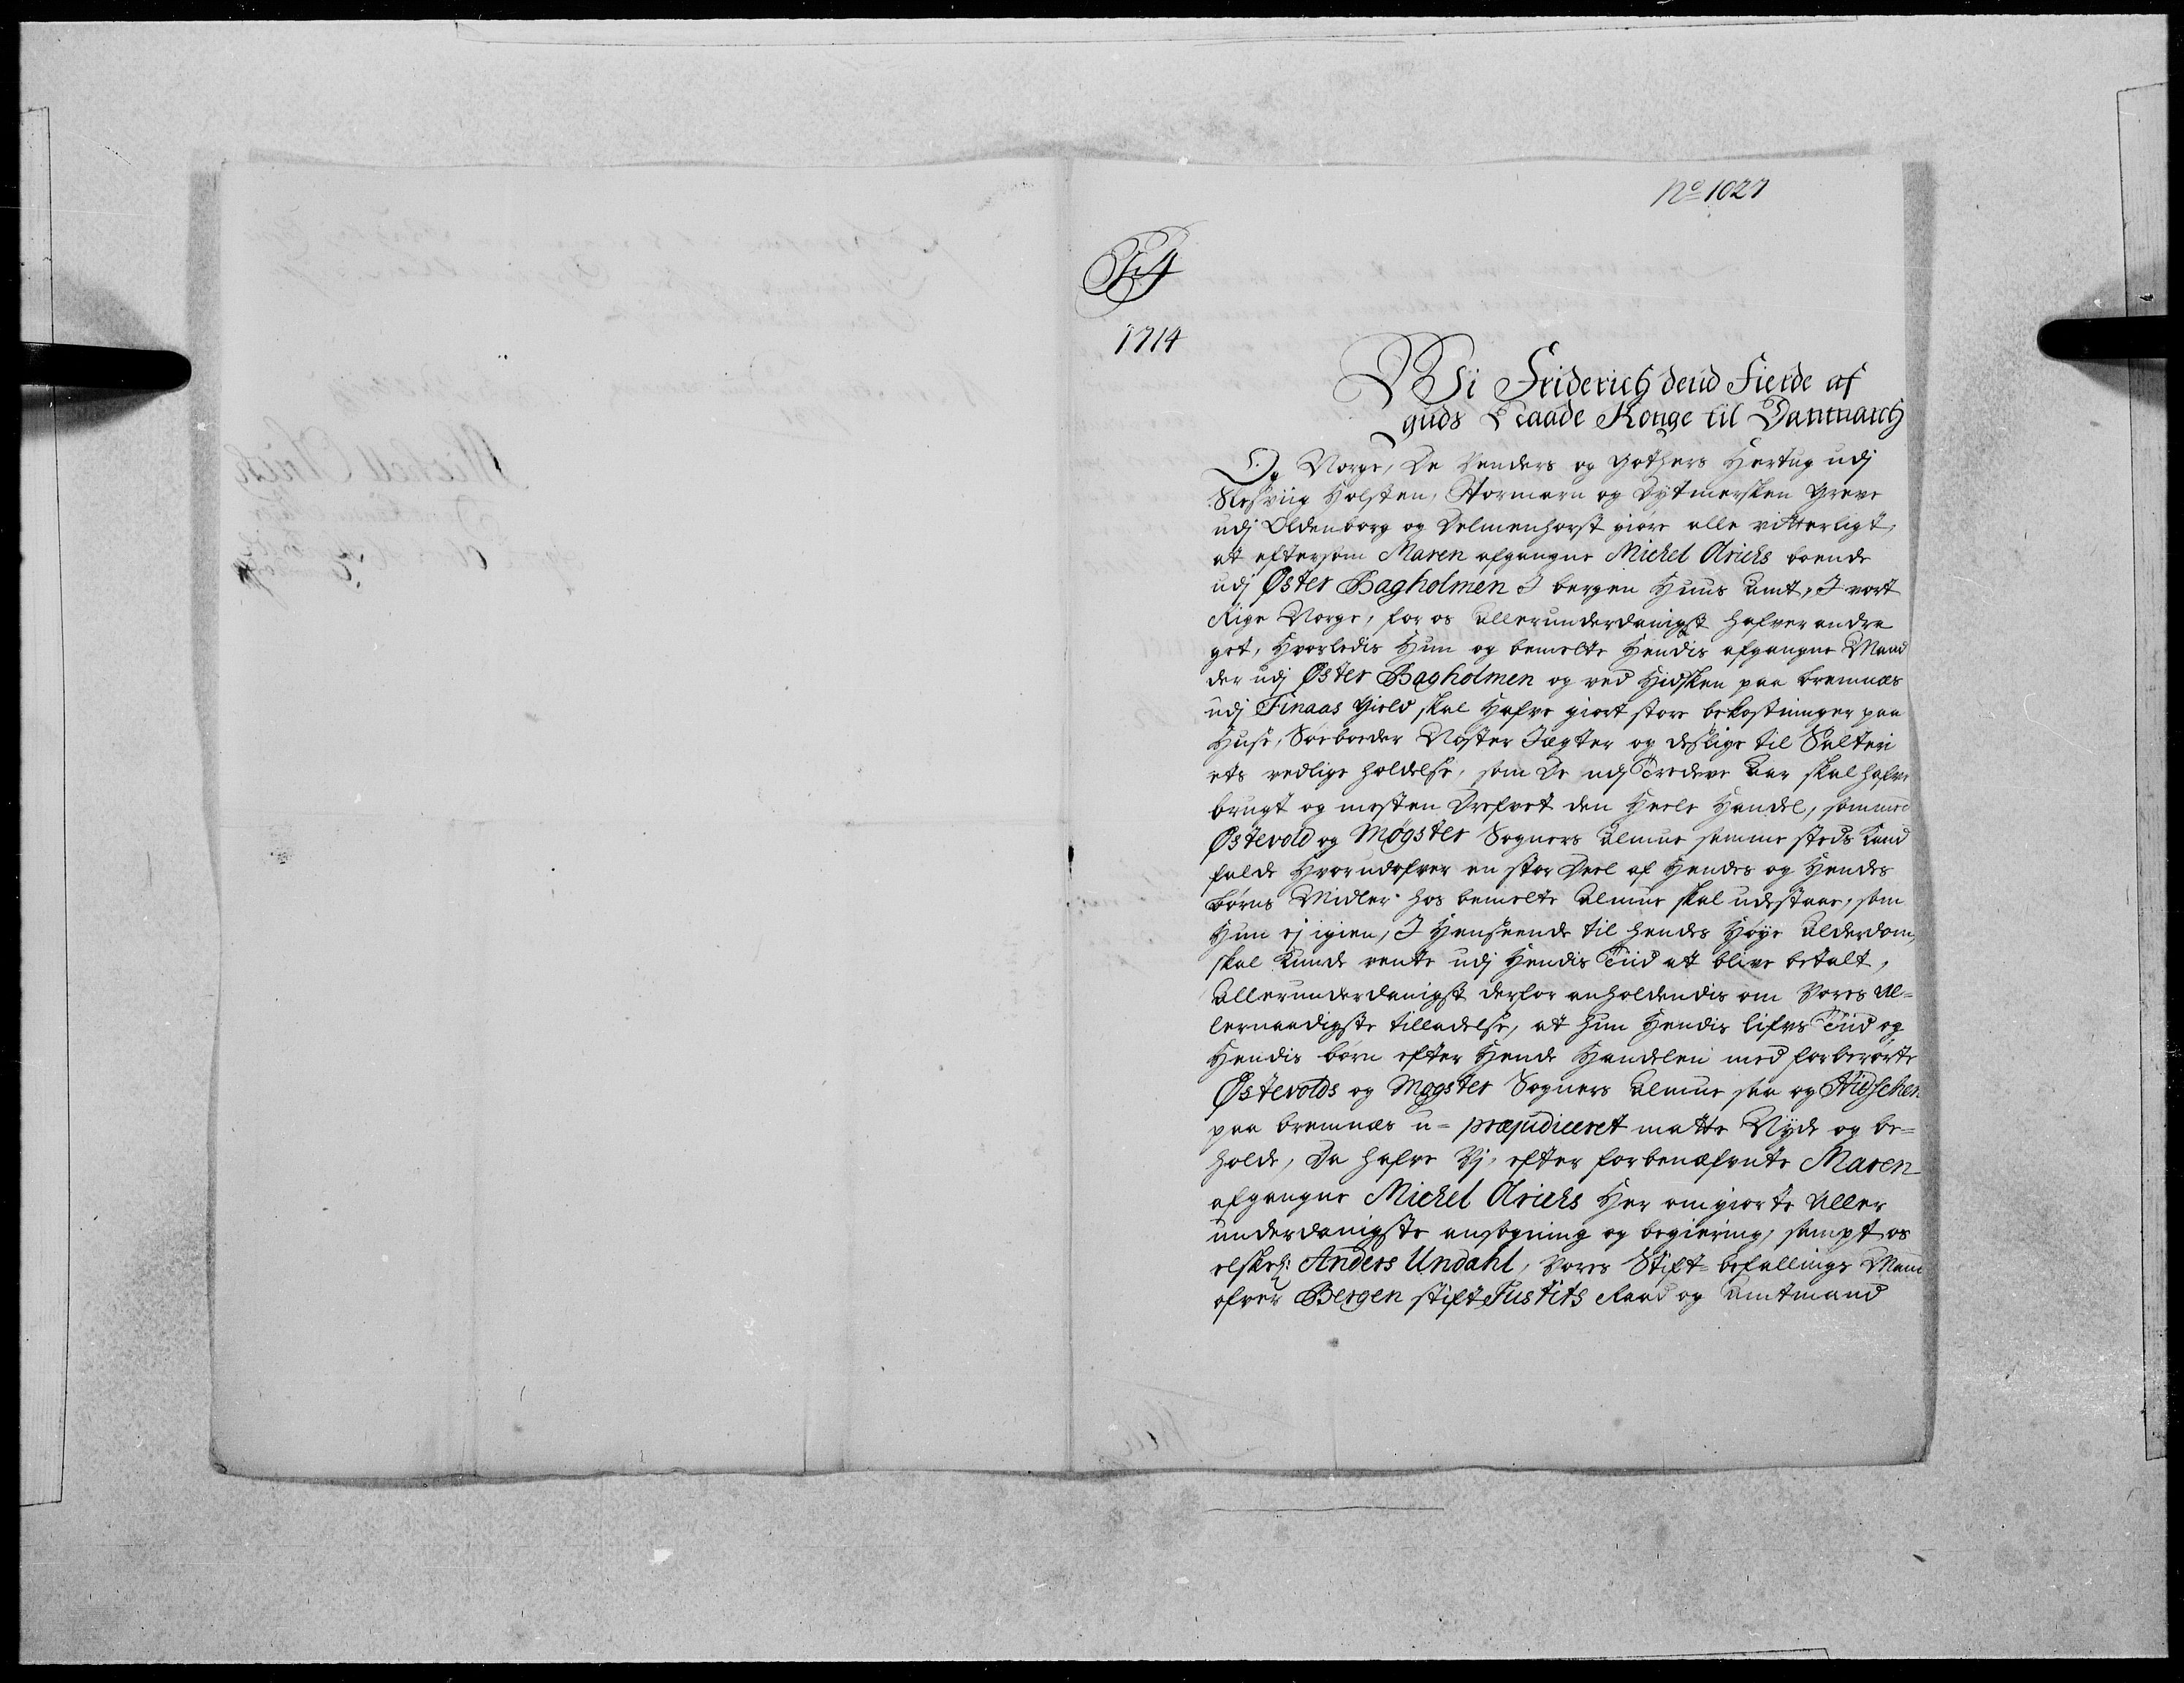 No 1027
F4
1714
Wi Friderich dend Fierde af
guds Naade Konge til Danmarch
Og Norge, De Venders og Gothers Hertug udj
Slesviig Holsten, Stormarn og Dytmersken Greve
udj Oldenborg og Delmenhorst giöre alle vitterligt,
at eftersom Maren afgangne Michel Olrichs boende
udj Øster Bagholmen I bergen Huus Amt, I vort
Rige Norge, for os Allerunderdanigst hafver andra
get, Hvorledis Hun og bemelte Hendis afgangne Mand
der udj Øster Bagholmen og ved Hidsken paa bremnæs
udj Finaas Gield skal Hafve giort store bekostninger paa
Huse, Söeboder Nöster Jægter og deslige til Salteri
ets vedlige holdelse, som De udj Tredeve Aar skal hafve
brugt og mesten Drefvet den Heele Handel, som med
Østevold og Møgster Sogners Almue samme steds kand
falde Hvorudofver en stor Deel af Hendes og Hendes
börns Midler hos bemelte Almue skal udestaae, som
Hun ej igien, I Henseende til hendes Höye Alderdom,
skal kunde vente udj Hendis Tiid at blive betalt,
Allerunderdanigst derfor anholdendis om Vores Al=
lernaadigste tilladelse, at hun Hendis lifvs Tiid og
Hendis börn efter Hende Handelen med forberörte
Østevolds og Mogster Sogners Almue saa og Hidschen
paa bremnæs u= præjudiceret matte Nyde og be=
holde, Da hafve Vj, efter forbenæfvnte Maren
afgangne Michel Olrichs Her om giorte Aller
underdanigste ansögning og begiering, sampt os
elskel: Anders Undahl, Vores Stift= befallings Mand
ofver Bergen stift Justits Raad og Amtmand